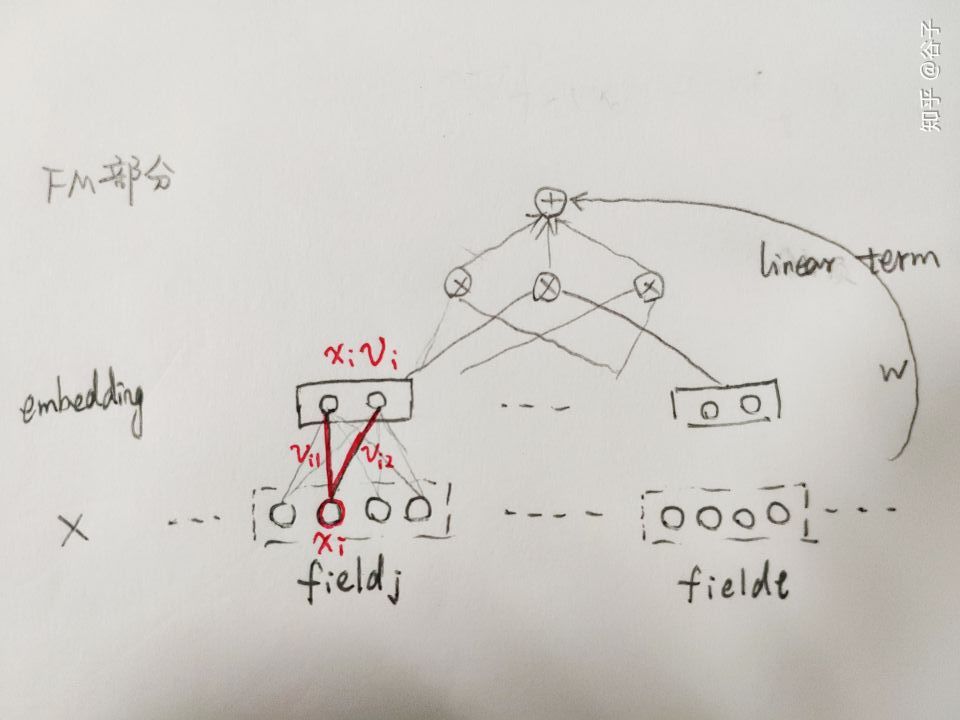 知乎 @谷子
FM部分
+
linear term
× × ×
w
x_i v_i
embedding
v_i1 v_i2
X
x_i
fieldj
fieldt